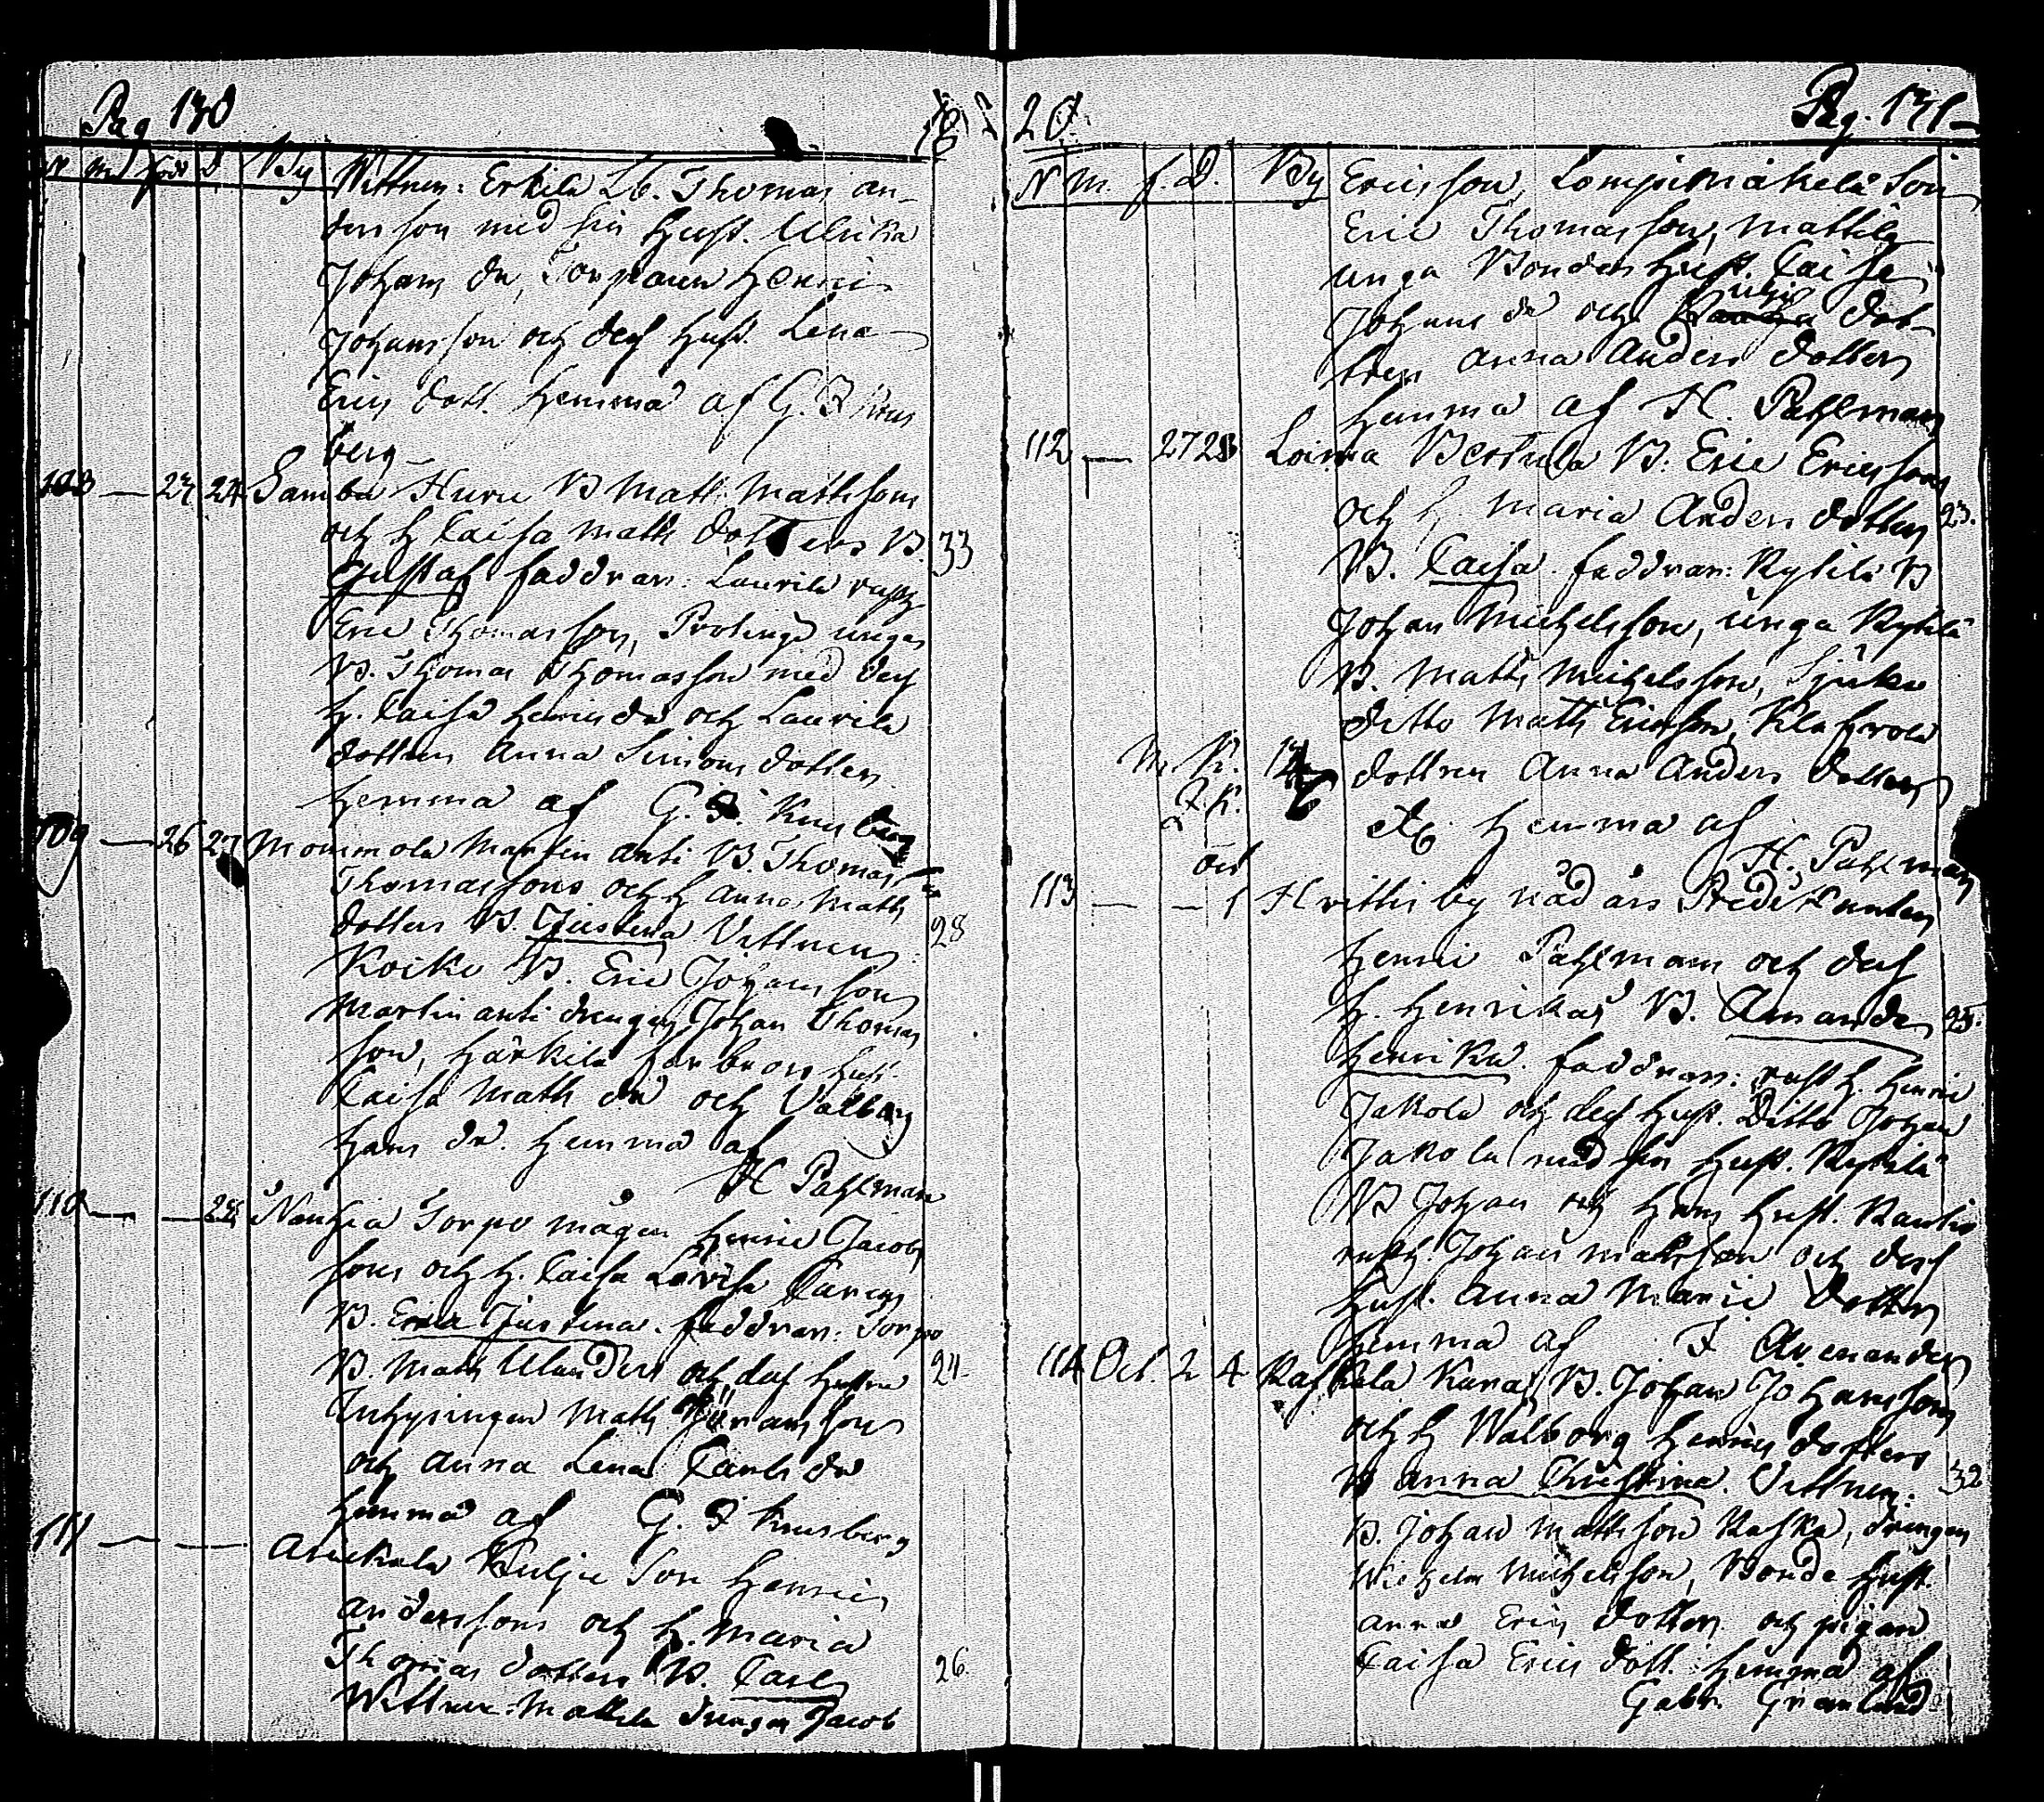 Pag 130
18
N Md föd d By Wittnen: Erkilä Lb. Thomas An-
dersson med sin Hust. Ulrika
Johans dr, Torparen Henric
Johansson och dess Hust. Lena
Erics dott. Hemma af G. F. Krus
berg
108 — 23 24 Samba Huru B Math: Mathssons
och H Caisa Maths Dotters B. 33
Gustaf faddrar: Laurila
Eric Thomasson, unga
B. Thomas Thomasson med dess
H. Caisa Henrics dr och Laurila
dottren Anna Simons dotter
Hemma af G. F. Krusberg
109 — 26 27 Mommola Martin Anti B. Thomas
Thomassons och H Anna Maths
dotters B. Justina Vittnen: 28
Koiki B. Eric Johansson
Martin anti drengen Johan Thomas
son, Härkilä farbrors Hust.
Caisa Maths dr och Valborg
Hans dr. Hemma af
H Pahlman
110 — — 28 Torpo mågen Henric Jacobs
sons och H. Caisa Lovisa Carens
B. Erica Justina. faddrar: Torpo
B. Maths Ulanders och dess Hustru 24.
Inhysingen Maths Göransson
och Anna Lena Carls dr
Hemma af G. F Krusberg
111 — — Arickala Kulju Son Henric
Anderssons och H. Maria
Thomas dotters B. Carl 26.
Wittnen: Mattila drengen Jacob
20 Pag. 131
N M. f. D. By Ericsson, Lompimäkelä Son
Eric Thomasson, Mattila
unga Bondens Hust. Caisa
Johans dr och dot-
tren Anna Anders dotter
Hemma af H. Pahlman
112 — 27 28 Loima Bertula B. Eric Ericssons
och H. Maria Anders dotters 23.
B. Caisa. faddrar: Kytilä B
Johan Michelsson, unga Kytilä
B. Maths Michelsson,
ditto Maths Ericsson,
dottren Anna Anders dotter
Hemma af
H. Pahlman
113 — — 1 Hvittis by nådårs Predikanten
Henric Pahlman och dess
H. Henrikas B. Amanda 25.
Henrika. faddrar: rusth. Henric
Jakola och dess Hust. Ditto Johan
Jakola med sin Hust. Kytilä
B Johan och hans Hust.
rusth Johan Mattsson och dess
Hust. Anna Maria dotter
Hemma af F. Avenander
114 Oct. 2 4 Raskala Karas B. Johan Johanssons
och H Walborg Henrics dotters
B Anna Christina. Vittnen: 32
B. Johan Mathsson Raska, drengen
Wilhelm Michelsson, Bonde Hust.
Anna Erics dotter och pigan
Caisa Erics dott. Hemma af
Gabr. Granlund